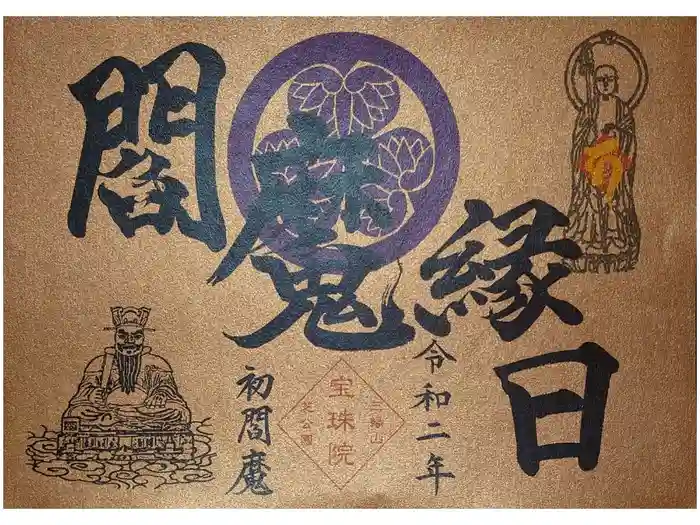 閻魔
縁日
初閻魔
令和二年
三縁山
宝珠院
芝公園